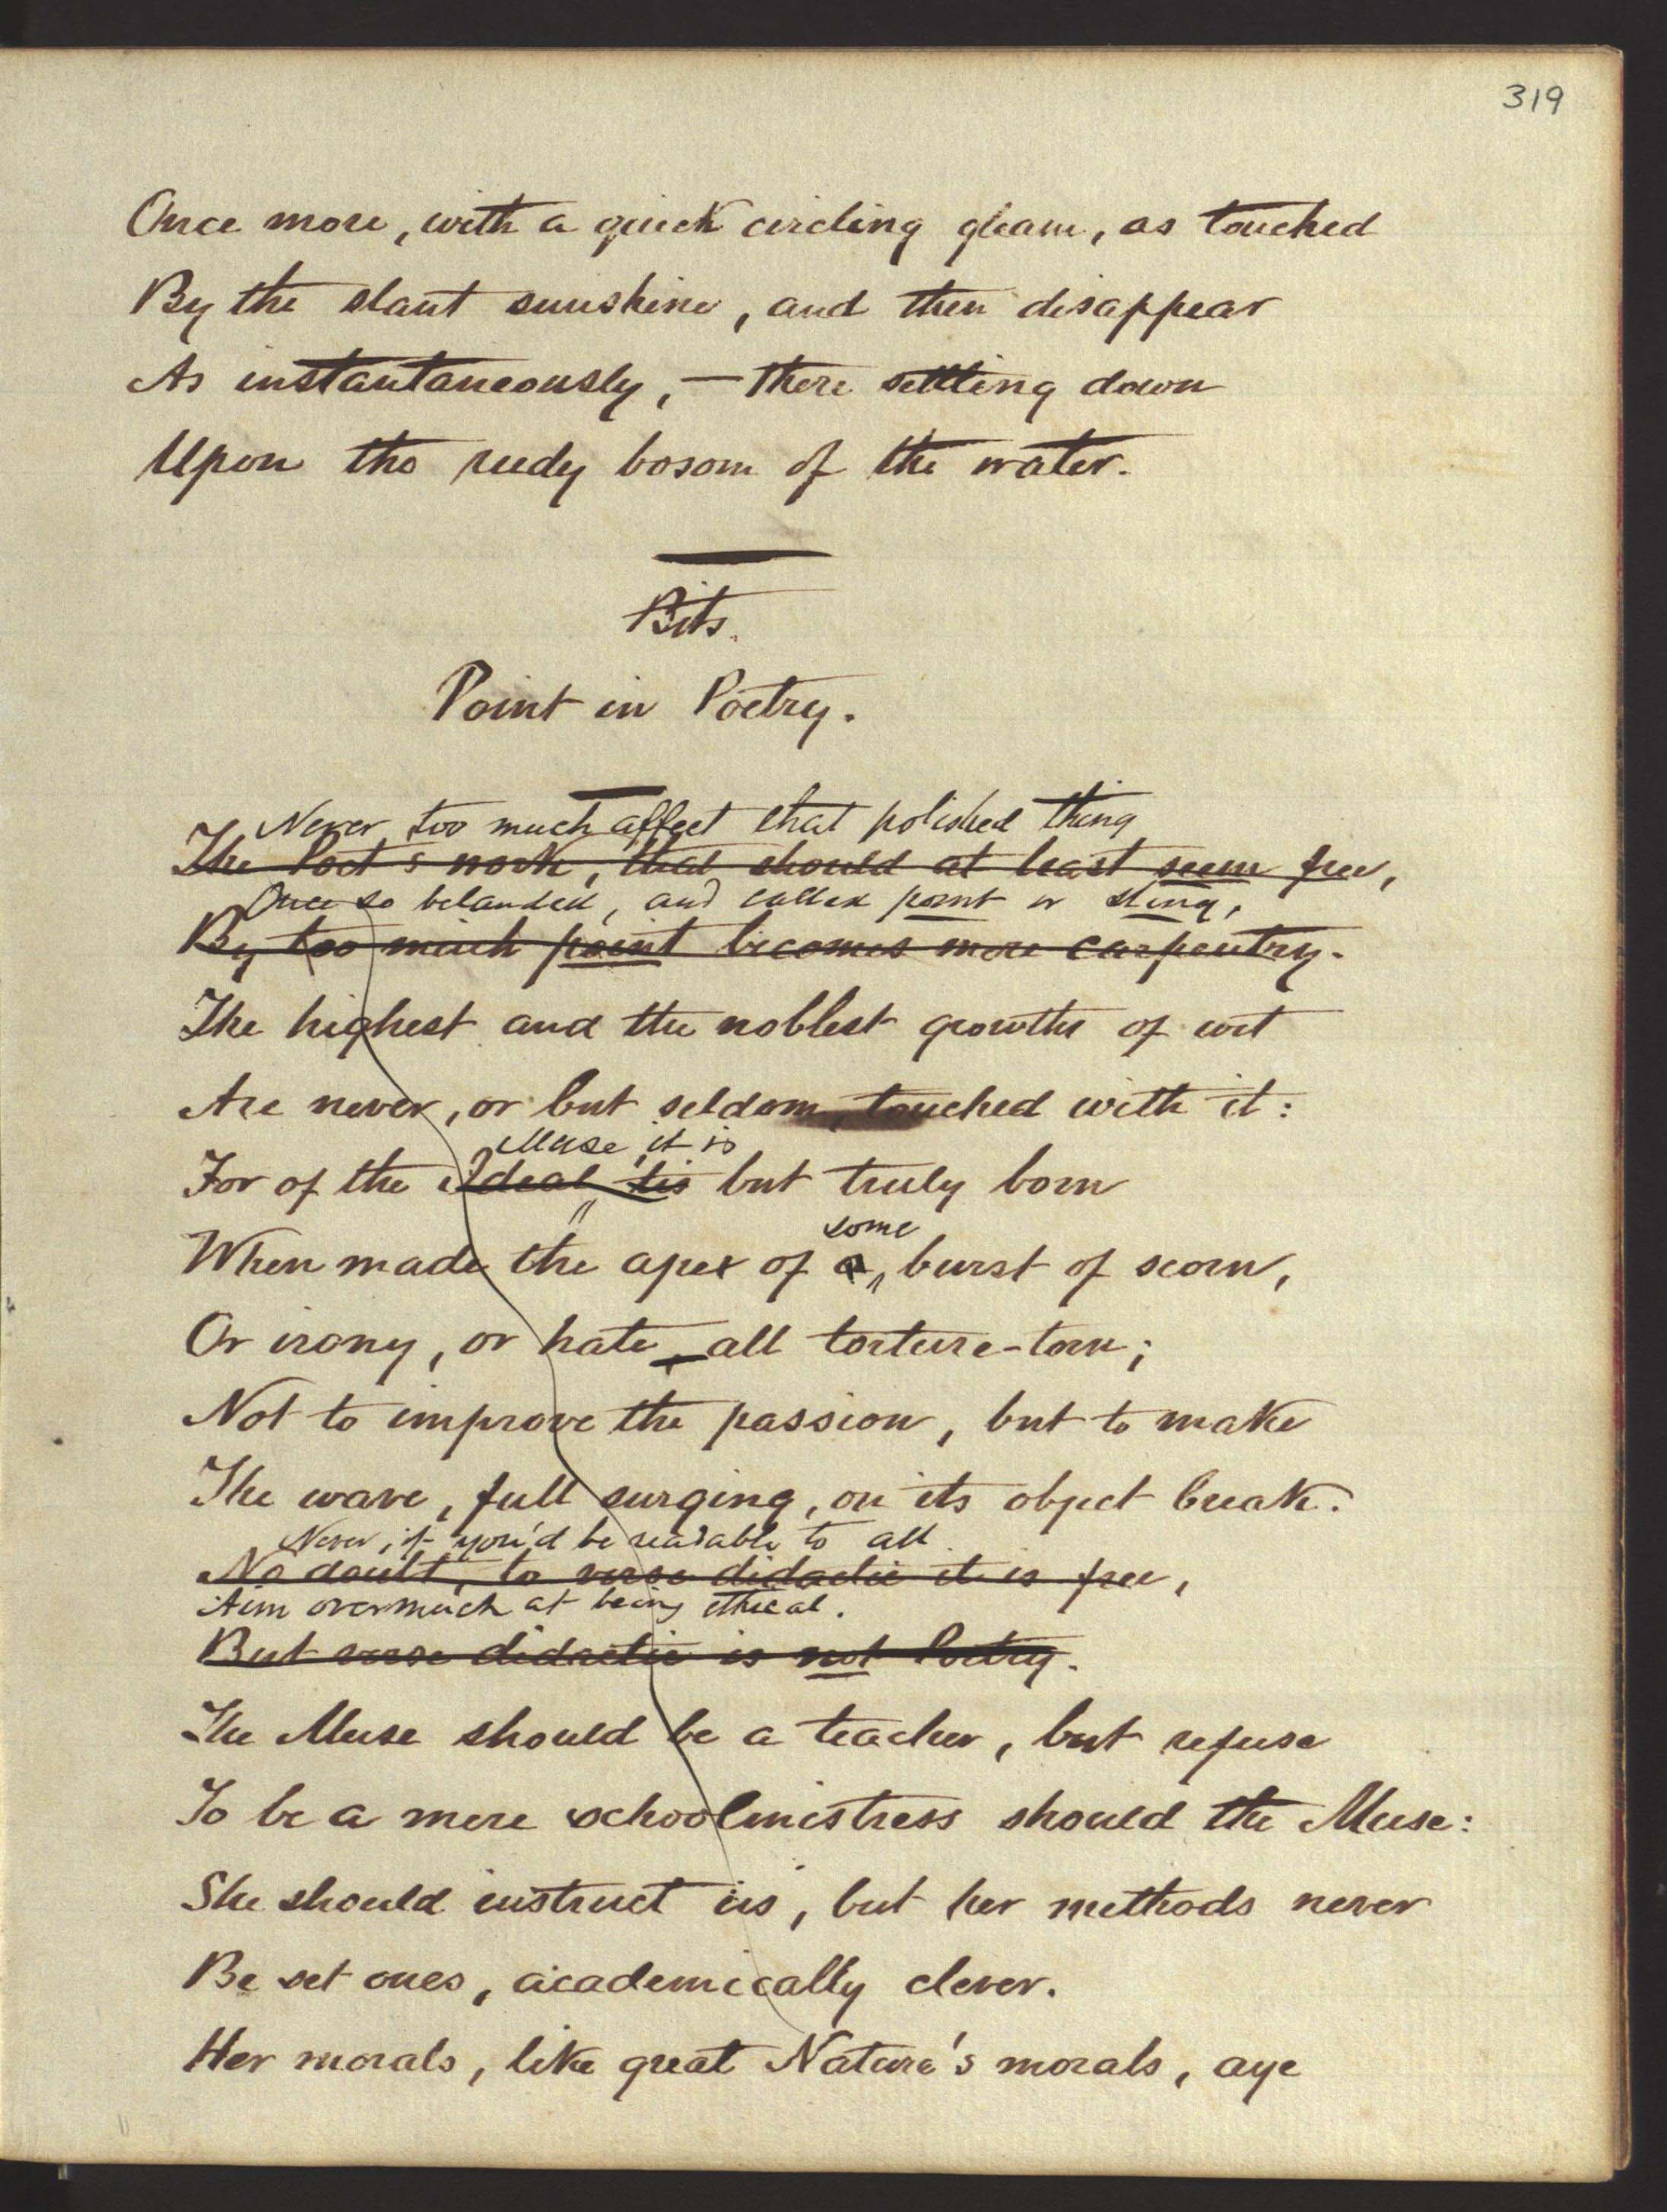 319
Once more, with a quick circling gleam, as touched
By the slant sunshine, and then disappear
As instantaneously, — there settling down
Upon the reedy bosom of the water.
Bits.
Point in Poetry.
Never too much affect that polished thing
The Poet's work, that should at least seem free,
Once so belauded, and called point or sting,
By too much point becomes mere carpentry.
The highest and the noblest growths of wit
Are never, or but seldom, touched with it:
Muse, it is
For of the Ideal, tis but truly born
some
When made the apex of a burst of scorn,
Or irony, or hate, all torture-torn;
Not to improve the passion, but to make
The wave, full surging, on its object break.
Never, if you'd be readable to all
No doubt, to verse didactic it is free,
Aim overmuch at being ethical.
But verse didactic is not Poetry.
The Muse should be a teacher, but refuse
To be a mere schoolmistress should the Muse:
She should instruct us, but her methods never
Be set ones, academically clever.
Her morals, like great Nature's morals, aye